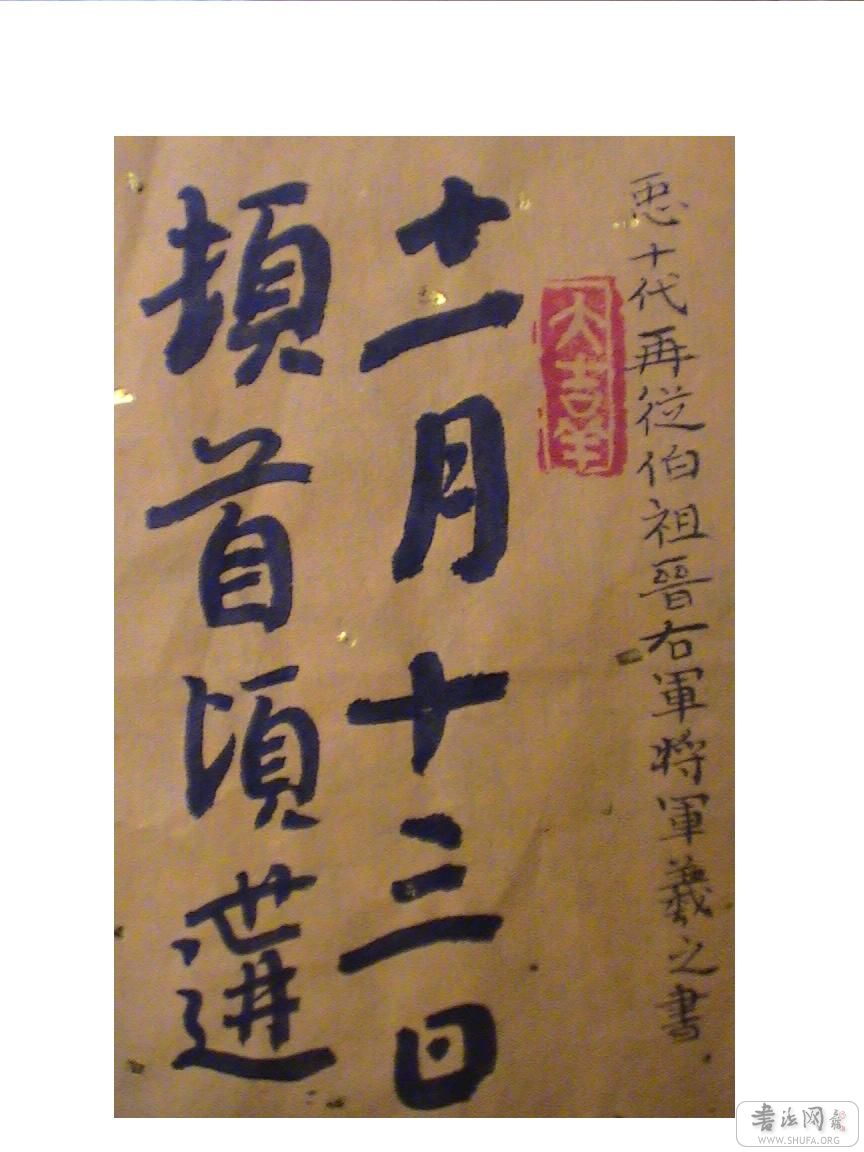 十代再從伯祖晉右軍將軍羲之書
大吉羊
十一月十三日
頓首頃遘
書法网
WWW.SHUFA.ORG